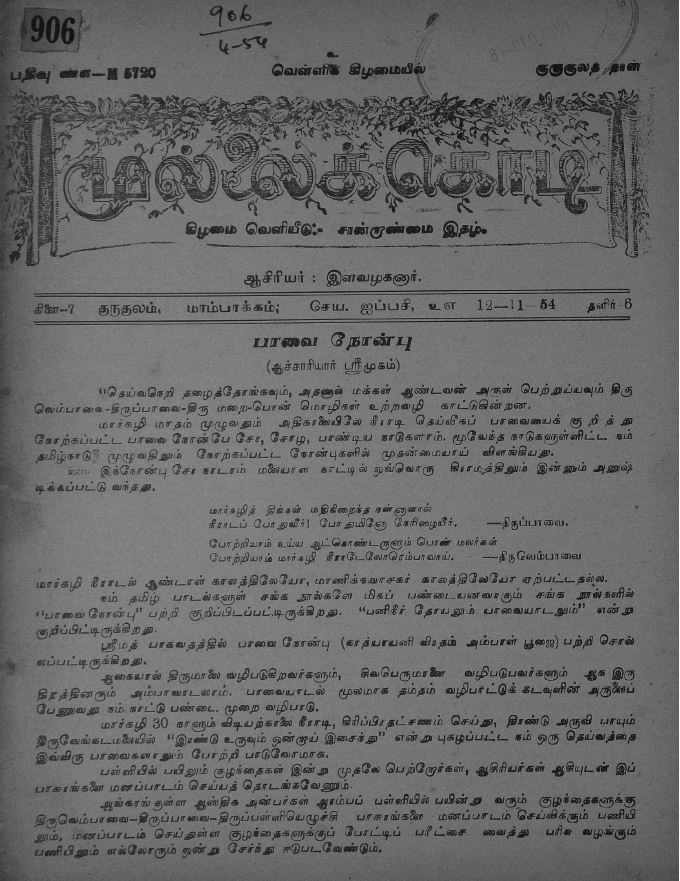 906
906
4-54
பதிவு எண்—M 5720 வெள்ளிக் கிழமையில் குருகுலத் தாள்
முல்லைக்கொடி
கிழமை வெளியீடு:- சான்றாண்மை இதழ்.
ஆசிரியர் : இளவழகனார்.
கிளை-7 தருதலம், மாம்பாக்கம்; செய. ஐப்பசி, உஎ 12—11—54 தளிர்-6
பாவை நோன்பு
(ஆச்சாரியார் ஸ்ரீமுகம்)
"தெய்வநெறி தழைத்தோங்கவும், அதனால் மக்கள் ஆண்டவன் அருள் பெற்றுய்யவும் திரு
வெம்பாவை-திருப்பாவை-திரு மறை-பொன் மொழிகள் உற்றவழி காட்டுகின்றன.
மார்கழி மாதம் முழுவதும் அதிகாலையிலே நீராடி தெய்வீகப் பாவையைக் குறித்து
நோற்கப்பட்ட பாவை நோன்பே சேர, சோழ, பாண்டிய நாடுகளாம். மூவேந்த நாடுகளுள்ளிட்ட நம்
தமிழ்நாடு முழுவதிலும் நோற்கப்பட்ட நோன்புகளில் முதன்மையாய் விளங்கியது.
இந்நோன்பு சேர நாடாம் மலையாள நாட்டில் ஒவ்வொரு கிராமத்திலும் இன்னும் அனுஷ்
டிக்கப்பட்டு வந்தது.
மார்கழித் திங்கள் மதிநிறைந்த நன்னாளால்
நீராடப் போதுவீர்! போதுமினோ நேரிழையீர். —திருப்பாவை.
போற்றியாம் உய்ய ஆட்கொண்டருளும் பொன் மலர்கள்
போற்றியாம் மார்கழி நீராடேலோரெம்பாவாய். —திருவெம்பாவை
மார்கழி நீராடல் ஆண்டாள் காலத்திலேயோ, மாணிக்கவாசகர் காலத்திலேயோ ஏற்பட்டதல்ல.
நம் தமிழ் பாடல்களுள் சங்க நூல்களே மிகப் பண்டையனவாகும் சங்க நூல்களில்
"பாவைநோன்பு" பற்றி குறிப்பிடப்பட்டிருக்கிறது. "பனிநீர் தோயலும் பாவையாடலும்" என்று
குறிப்பிட்டிருக்கிறது.
ஸ்ரீமத் பாகவதத்தில் பாவை நோன்பு (காத்யாயனி விரதம் அம்பாள் பூஜை) பற்றி சொல்
லப்பட்டிருக்கிறது.
ஆகையால் திருமாலை வழிபடுகிறவர்களும், சிவபெருமானை வழிபடுபவர்களும் ஆக இரு
திறத்தினரும் அம்பாவாடலாம். பாவையாடல் மூலமாக தம்தம் வழிபாட்டுக் கடவுளின் அருளைப்
பேணுவது நம் நாட்டு பண்டை. முறை வழிபாடு.
மார்கழி 30 நாளும் விடியற்காலை நீராடி, கிரிப்பிரதட்சணம் செய்து, திரண்டு அருவி பாயும்
திருவேங்கடமலையில் "இரண்டு உருவும் ஒன்றாய் இசைந்து" என்று புகழப்பட்ட நம் ஒரு தெய்வத்தை
இவ்விரு பாவைகளாலும் போற்றி பாடுவோமாக.
பள்ளியில் பயிலும் குழந்தைகள் இன்று முதலே பெற்றோர்கள், ஆசிரியர்கள் ஆசியுடன் இப்
பாசுரங்களை மனப்பாடம் செய்யத் தொடங்கவேணும்.
ஆங்காங்குள்ள ஆஸ்திக அன்பர்கள் ஆரம்பப் பள்ளியில் பயின்று வரும் குழந்தைகளுக்கு
திருவெம்பாவை—திருப்பாவை—திருப்பள்ளியெழுச்சி பாசுரங்களை மனப்பாடம் செய்விக்கும் பணியி
லும், மனப்பாடம் செய்துள்ள குழந்தைகளுக்குப் போட்டிப் பரீட்சை வைத்து பரிசு வழங்கும்
பணியிலும் எல்லோரும் ஒன்று சேர்ந்து ஈடுபடவேண்டும்.